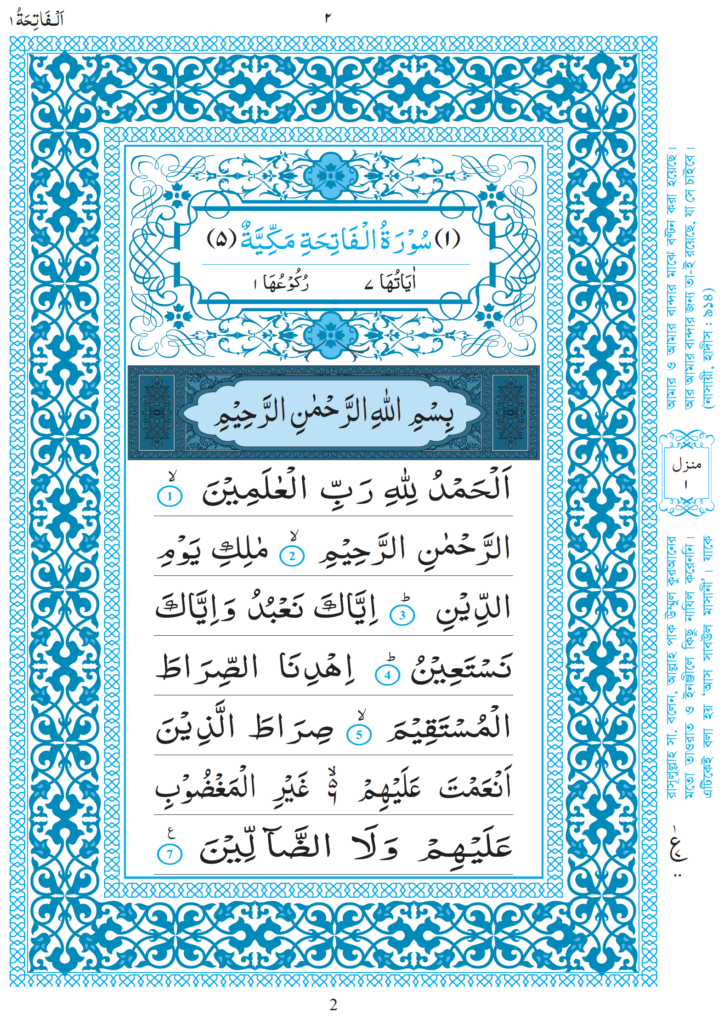 اَلْفَاتِحَةُ ١
٢
(١) سُوْرَةُ الْفَاتِحَةِ مَكِّيَّةٌ (٥)
اٰيَاتُهَا ٧ رُكُوْعُهَا ١
بِسْمِ اللهِ الرَّحْمٰنِ الرَّحِيْمِ
اَلْحَمْدُ لِلّٰهِ رَبِّ الْعٰلَمِيْنَ ۙ 1
الرَّحْمٰنِ الرَّحِيْمِ ۙ 2 مٰلِكِ يَوْمِ
الدِّيْنِ ؕ 3 اِيَّاكَ نَعْبُدُ وَاِيَّاكَ
نَسْتَعِيْنُ ؕ 4 اِهْدِنَا الصِّرَاطَ
الْمُسْتَقِيْمَ ۙ 5 صِرَاطَ الَّذِيْنَ
اَنْعَمْتَ عَلَيْهِمْ ۙ۬ 6 غَيْرِ الْمَغْضُوْبِ
عَلَيْهِمْ وَلَا الضَّآلِّيْنَ ع 7
আমার ও আমার বান্দার মাঝে বণ্টন করা হয়েছে।
আর আমার বান্দার জন্য তা-ই রয়েছে, যা সে চাইবে।
(নাসায়ী, হাদীস : ৯১৪)
منزل
١
রাসূলুল্লাহ সা. বলেন, আল্লাহ পাক উম্মুল কুরআনের
মতো তাওরাত ও ইনজীলে কিছু নাযিল করেননি।
এটিকেই বলা হয় ‘আস সাবউল মাসানী’। যাকে
2